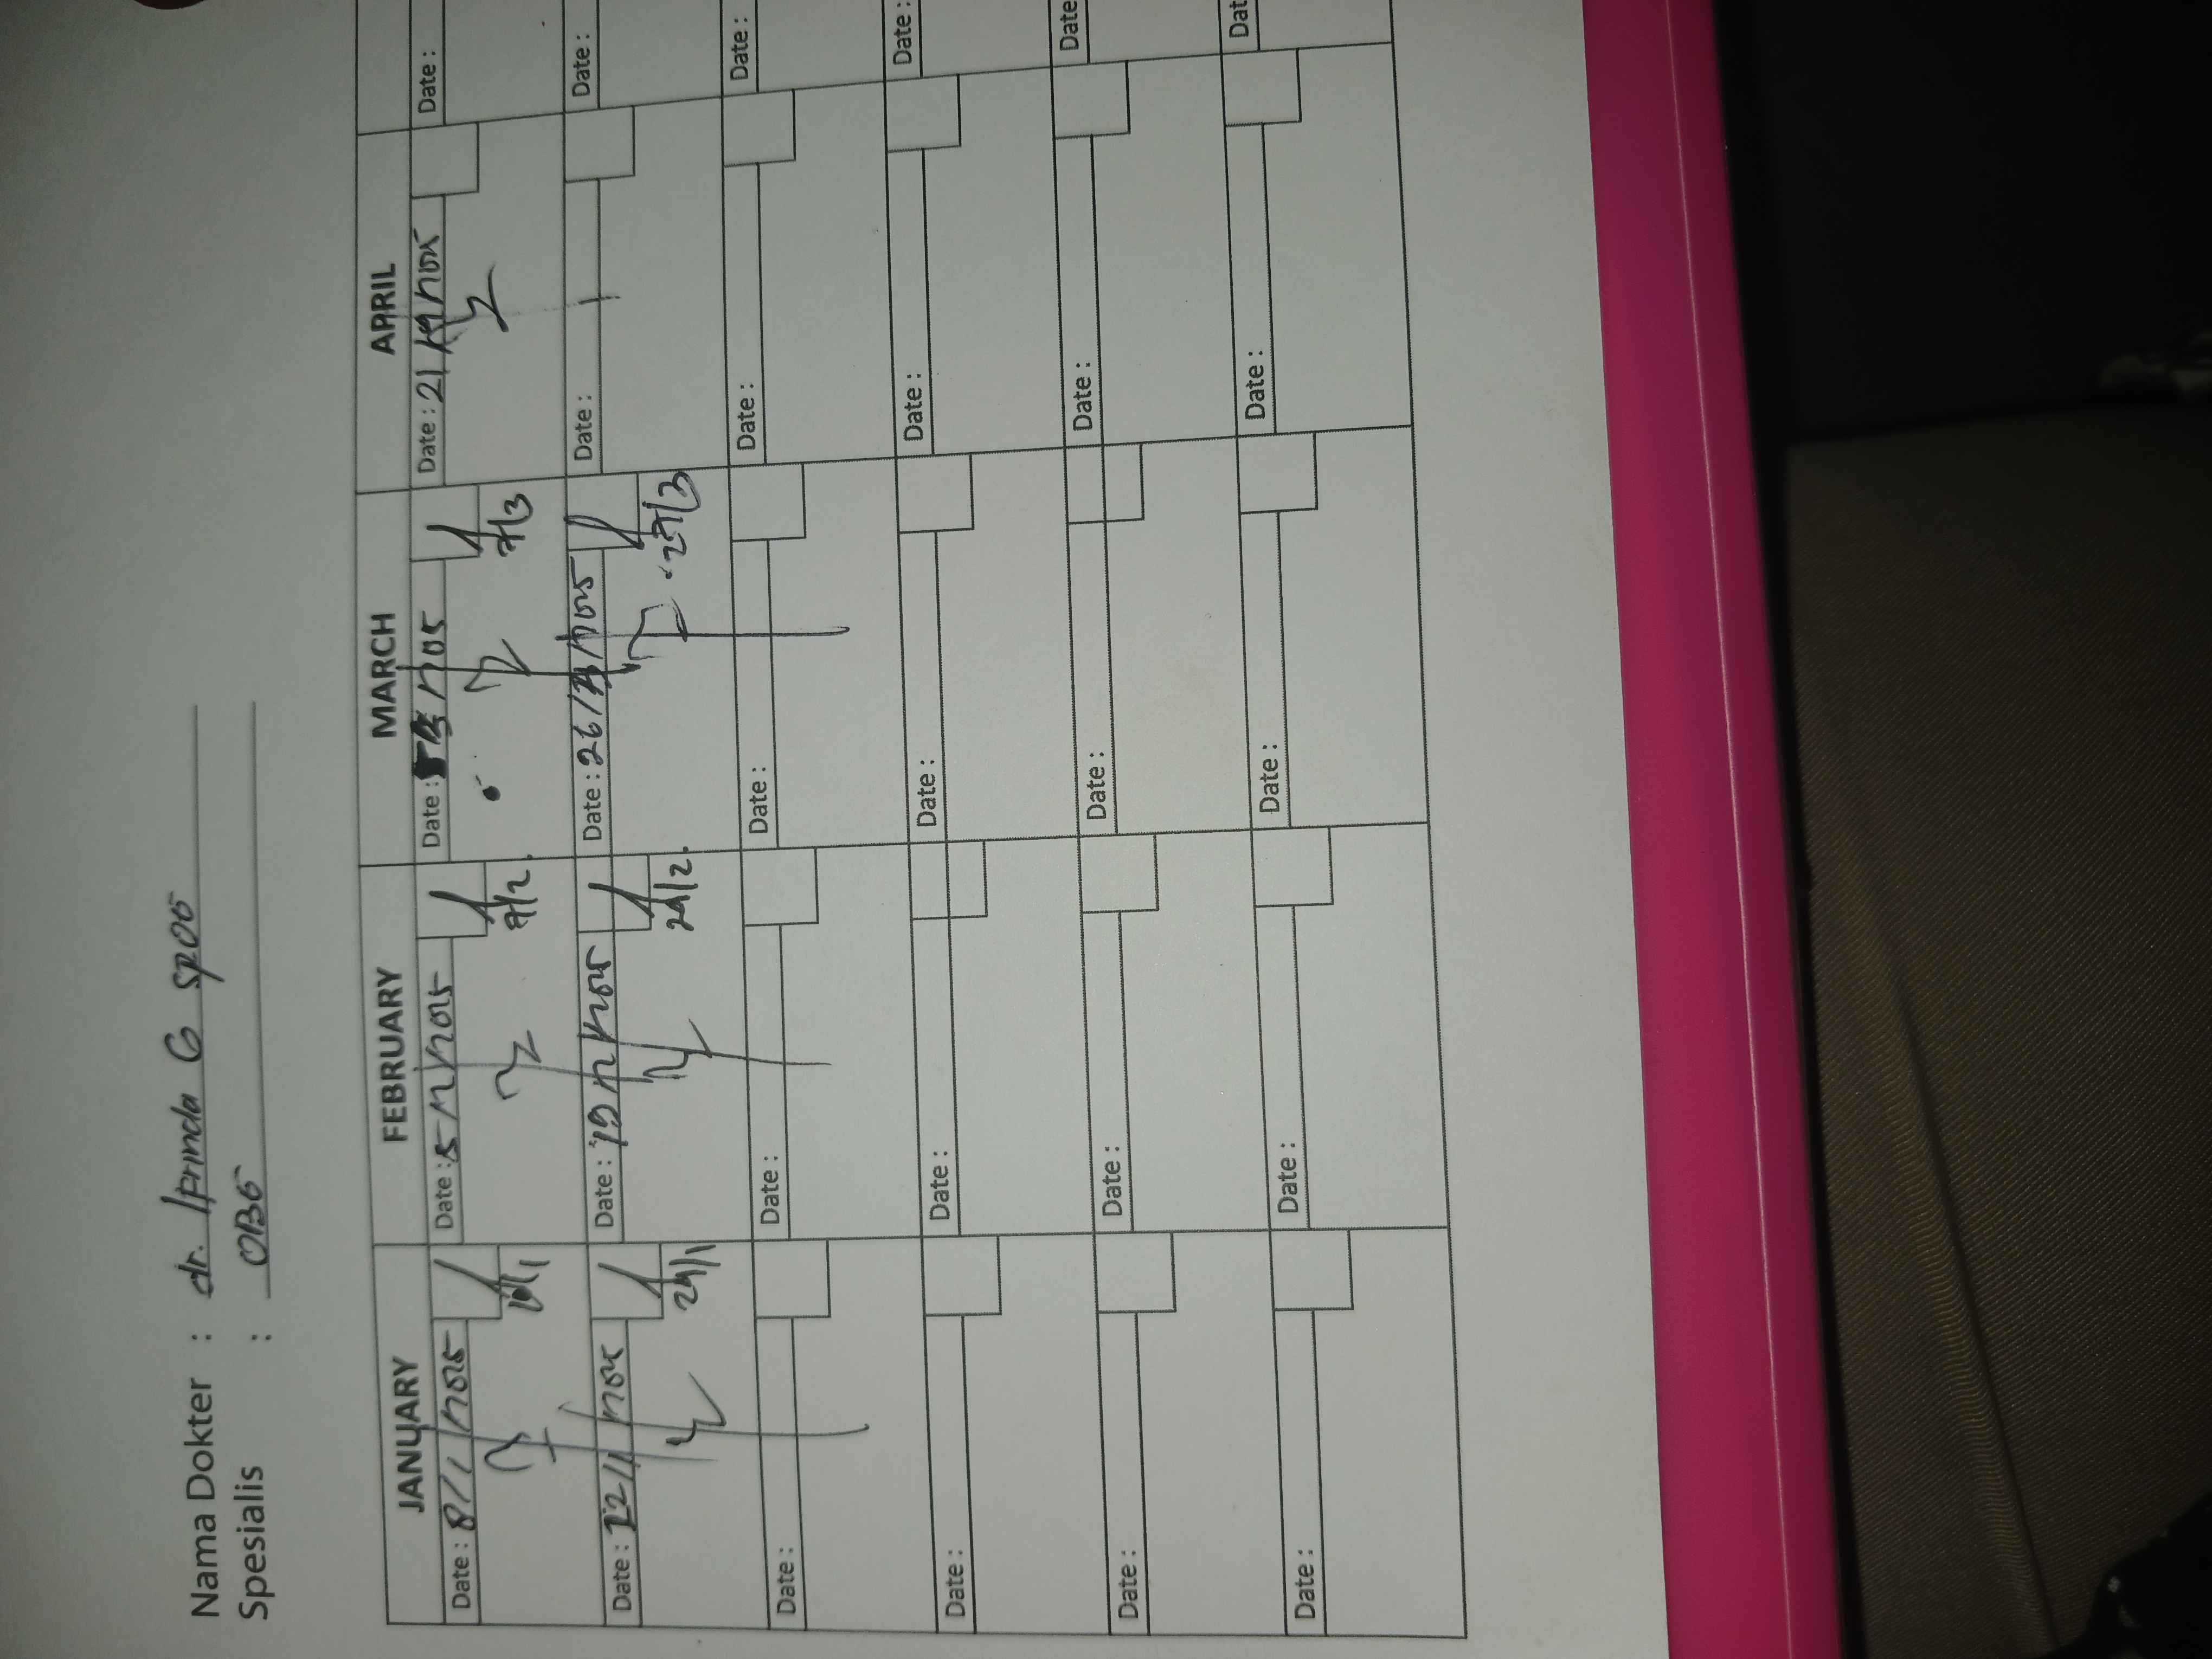 Nama Dokter : dr. Iprinda G SPOG
Spesialis : OBG
JANUARY FEBRUARY MARCH APRIL
Date : 8/1/2025 Date : 5/2/2025 Date : /2025 Date : 21/2025 Date :
7/2 7/3
Date : 22/1/2025 Date : 19/2/2025 Date : 26/3/2025 Date : Date :
24/1 21/2 27/3
Date : Date : Date : Date : Date :
Date : Date : Date : Date : Date :
Date : Date : Date : Date : Date
Date : Date : Date : Date : Dat